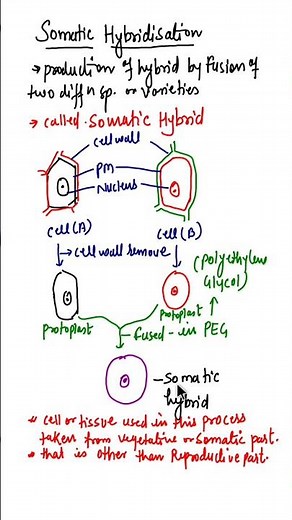 Somatic Hybridisation
→ production of hybrid by fusion of
two diffn sp. or varieties
→ called. Somatic Hybrid
cell wall
PM
Nucleus
cell (A)
cell (B)
→ cell wall remove
(Polyethylene
Glycol)
protoplast
protoplast
fused - in PEG
Somatic
hybrid
cell or tissue used in this process
taken from vegetative or somatic part.
that is other than Reproductive part.